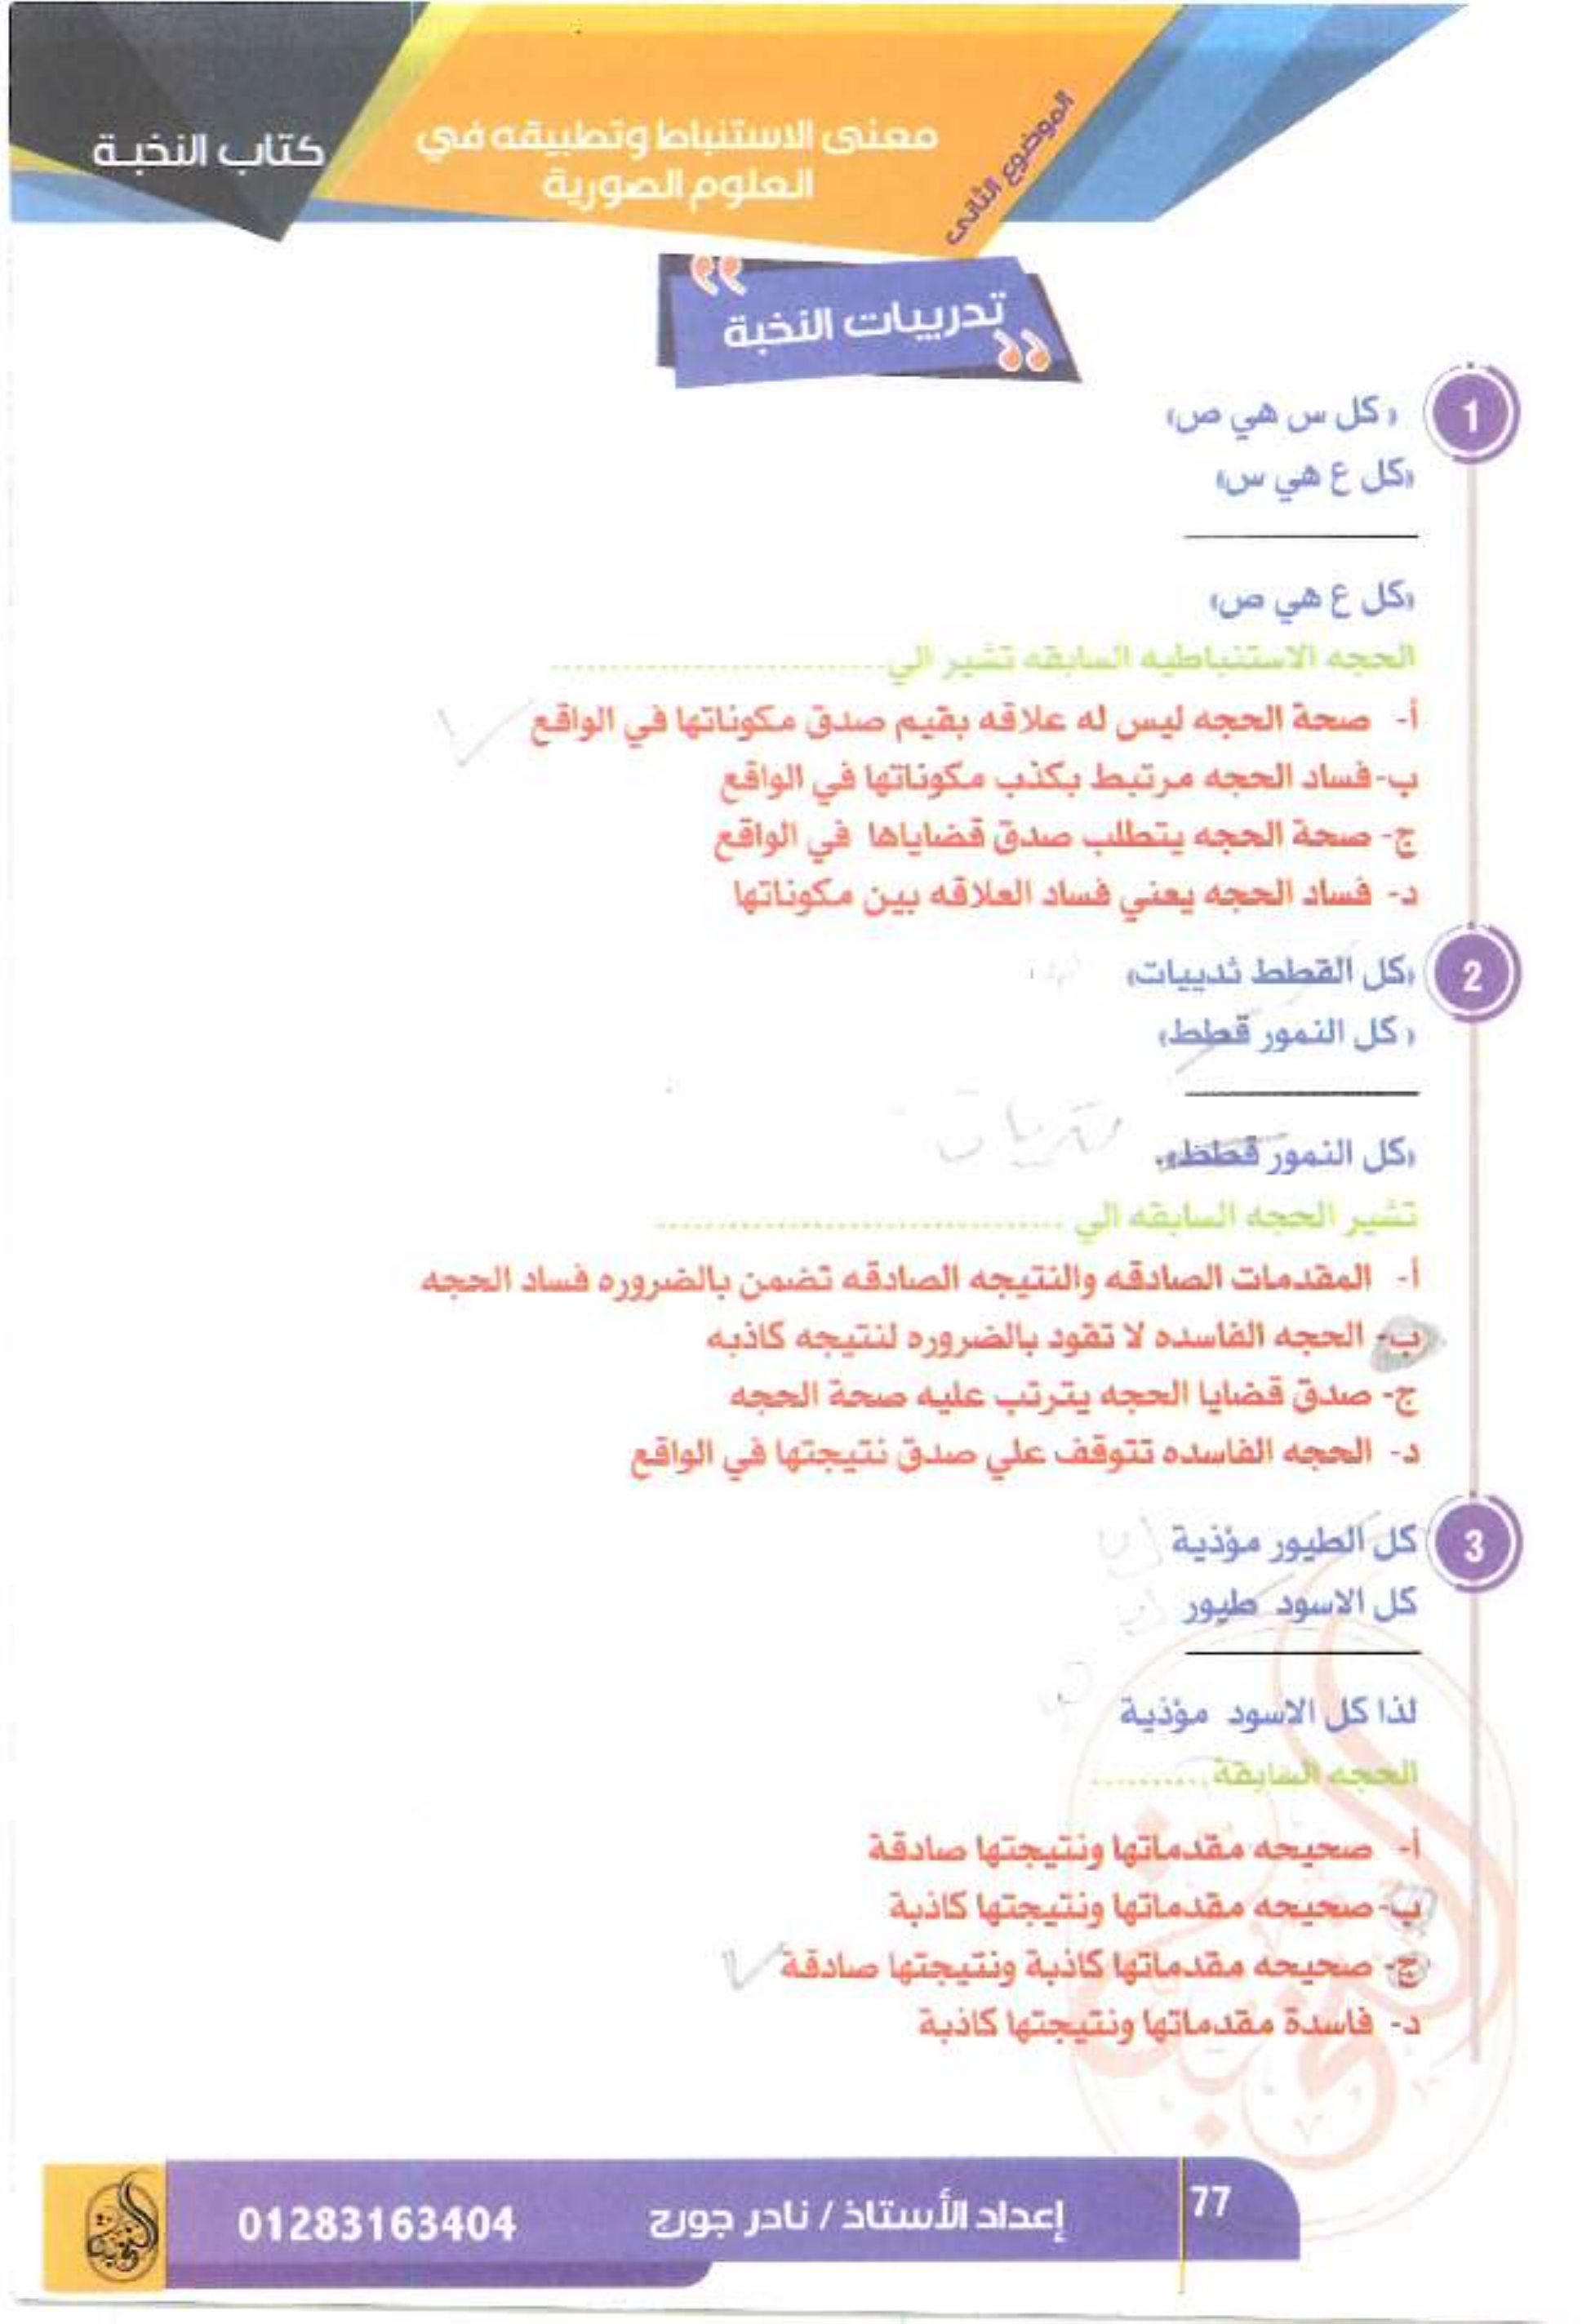 الموضوع الثانى
معنى الاستنباط وتطبيقه في
العلوم الصورية
كتاب النخبة
تدريبات النخبة
1
«كل س هي ص»
«كل ع هي س»
«كل ع هي ص»
الحجه الاستنباطيه السابقه تشير الي.............................
أ- صحة الحجه ليس له علاقه بقيم صدق مكوناتها في الواقع
ب- فساد الحجه مرتبط بكذب مكوناتها في الواقع
ج- صحة الحجه يتطلب صدق قضاياها في الواقع
د- فساد الحجه يعني فساد العلاقه بين مكوناتها
2
«كل القطط ثدييات»
«كل النمور قطط»
«كل النمور قطط».
تشير الحجه السابقه الي .................................
أ- المقدمات الصادقه والنتيجه الصادقه تضمن بالضروره فساد الحجه
ب- الحجه الفاسده لا تقود بالضروره لنتيجه كاذبه
ج- صدق قضايا الحجه يترتب عليه صحة الحجه
د- الحجه الفاسده تتوقف علي صدق نتيجتها في الواقع
3
كل الطيور مؤذية
كل الاسود طيور
لذا كل الاسود مؤذية
الحجه السابقة..........
أ- صحيحه مقدماتها ونتيجتها صادقة
ب- صحيحه مقدماتها ونتيجتها كاذبة
ج- صحيحه مقدماتها كاذبة ونتيجتها صادقة
د- فاسدة مقدماتها ونتيجتها كاذبة
77
إعداد الأستاذ / نادر جورج
01283163404